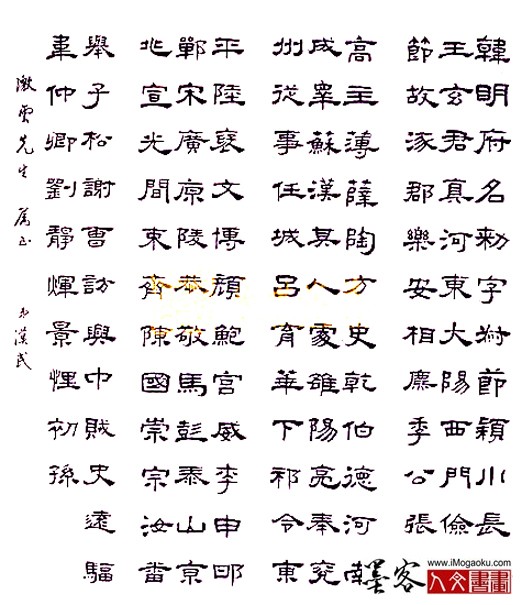 韓明府名勑字尌節穎川長
王玄君真河東大陽西門儉
節故涿郡樂安相麃季公張
高主薄薛陶方史乾伯德河南
成睾蘇漢其人處雄陽亮奉兗
州從事任城呂育華下祁令東
平陸裦文博顏鮑宮威李申
鄲宋廣原陵恭敬馬彭黍山京
兆宣光間束齊陳國崇宗汝畨
舉子松謝曹訪興中賊史遠驅
車仲卿劉靜煇景恇初孫
澂雲先生 属正 弟漢民
墨客
www.iMogaoku.com
人文書畫